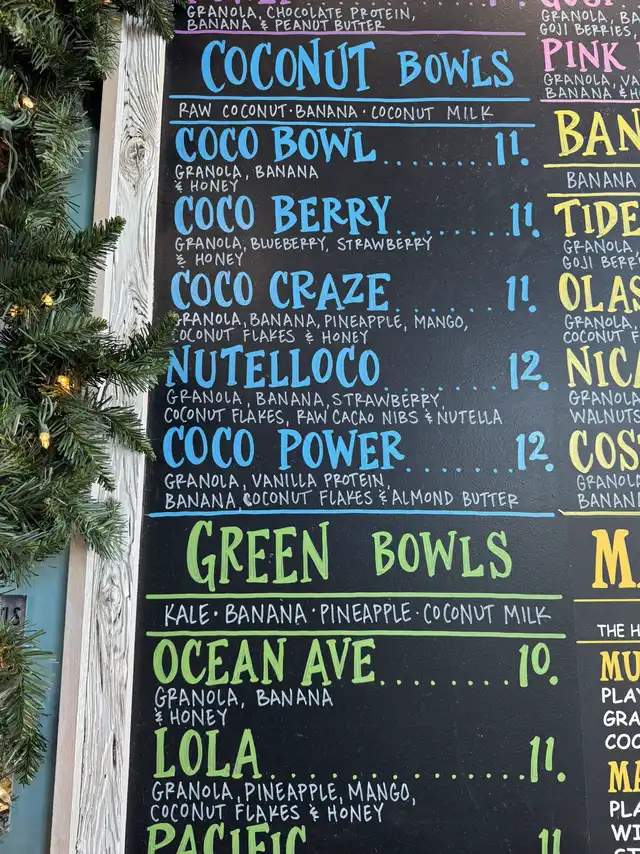 GRANOLA, CHOCOLATE PROTEIN,
BANANA & PEANUT BUTTER
COCONUT BOWLS
RAW COCONUT · BANANA · COCONUT MILK
COCO BOWL........11.
GRANOLA, BANANA
& HONEY
COCO BERRY........11.
GRANOLA, BLUEBERRY, STRAWBERRY
& HONEY
COCO CRAZE........11.
GRANOLA, BANANA, PINEAPPLE, MANGO,
COCONUT FLAKES & HONEY
NUTELLOCO........12.
GRANOLA, BANANA, STRAWBERRY,
COCONUT FLAKES, RAW CACAO NIBS & NUTELLA
COCO POWER.......12.
GRANOLA, VANILLA PROTEIN,
BANANA, COCONUT FLAKES & ALMOND BUTTER
GREEN BOWLS
KALE · BANANA · PINEAPPLE · COCONUT MILK
OCEAN AVE........10.
GRANOLA, BANANA
& HONEY
LOLA..............11.
GRANOLA, PINEAPPLE, MANGO,
COCONUT FLAKES & HONEY
PACIFIC 11
GRANOLA, BA
GOJI BERRIES,
PINK
GRANOLA, VA
BANANA & H
BAN
BANANA
TIDE
GRANOLA,
GOJI BERR
OLAS
GRANOLA,
COCONUT F
NICA
GRANOLA
WALNUTS
COS
GRANOLA
BANANA
M
THE H
MU
PLA
GRA
COC
MA
PLA
WI